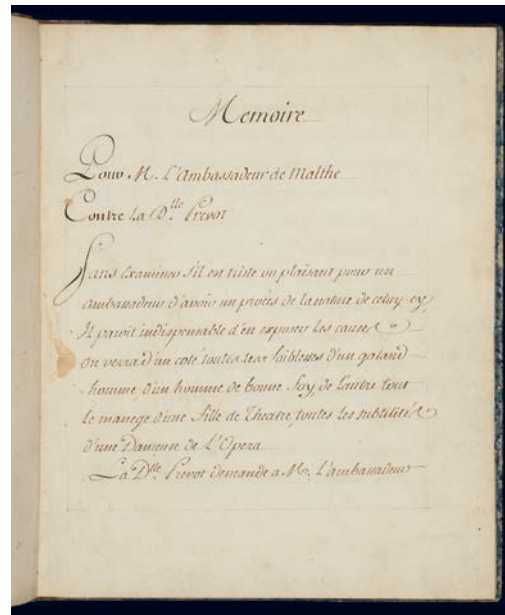 Memoire
Pour M. L'Ambassadeur de Malthe
Contre La D.lle Prevot
Sans Examiner s'il est triste ou plaisant pour un
ambassadeur d'avoir un procès de la nature de celuy-cy,
Il paroit indispensable d'en exposer les causes
on verra d'un coté toutes les foiblesses d'un galand
homme, d'un homme de bonne foy, de l'autre tout
le manege d'une fille de Theatre, toutes les subtilités
d'une Danseuse de L'Opera
La D.lle Prevot demande a M. L'ambassadeur